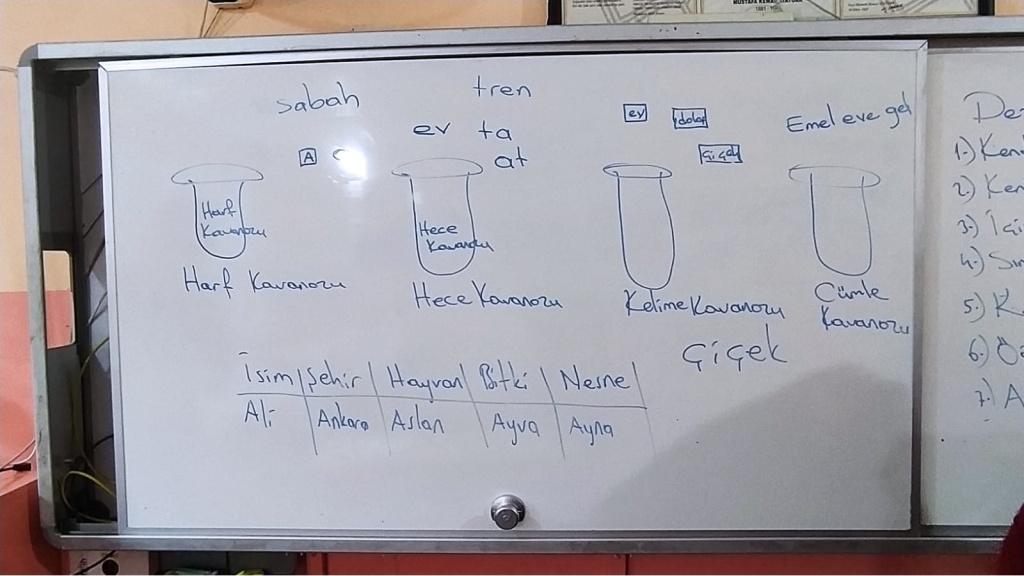 MUSTAFA KEMAL ATATÜRK
sabah
tren
ev ta
at
A
ev
dolap
çiçek
Emel eve gel
Harf
Kavanozu
Hece
Kavanozu
Harf Kavanozu
Hece Kavanozu
Kelime Kavanozu
Cümle
Kavanozu
çiçek
İsim Şehir Hayvan Bitki Nesne
Ali Ankara Aslan Ayva Ayna
1.)
2.)
3.)
4.)
5.)
6.)
7.)